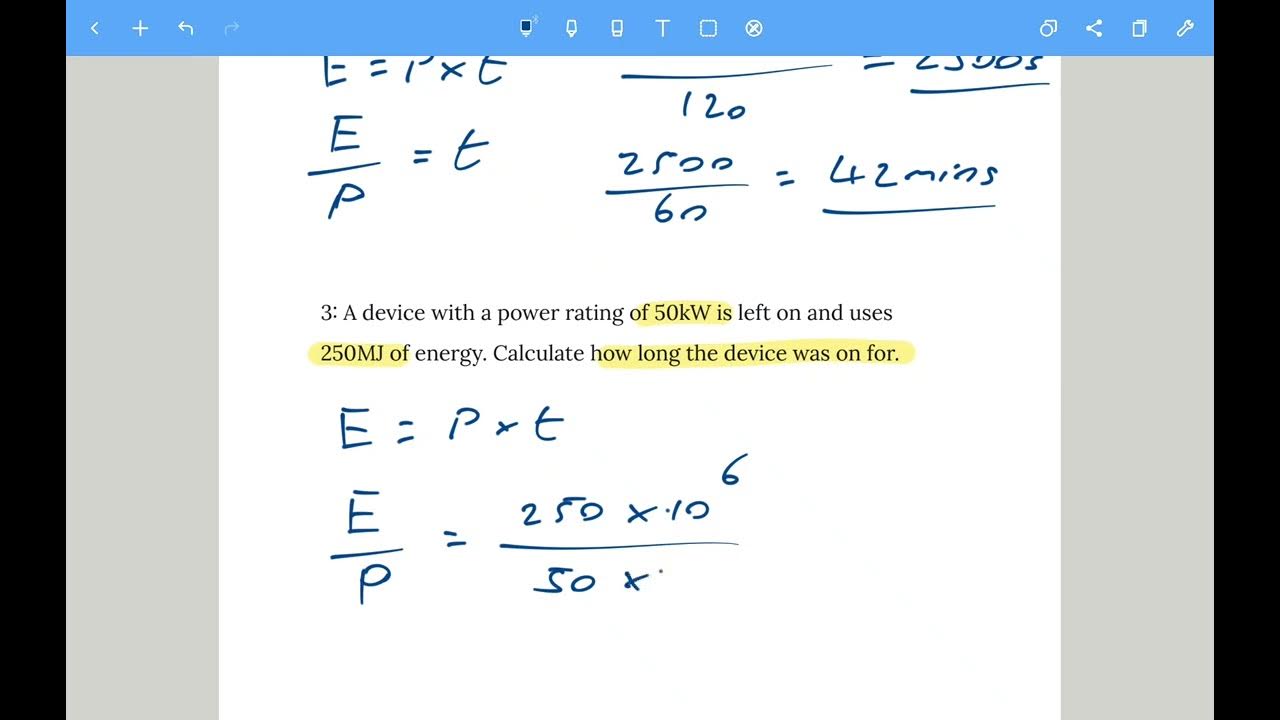 E = P × t
120
= 2500s
E
P
= t
2500
60
= 42 mins
3: A device with a power rating of 50kW is left on and uses
250MJ of energy. Calculate how long the device was on for.
E = P × t
E
P
=
250 × 10⁶
50 ×